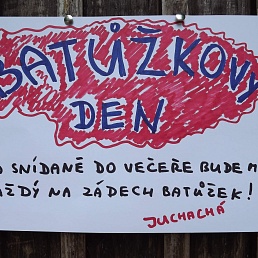 BATŮŽKOVÝ
DEN
SNÍDANĚ DO VEČEŘE BUDE
NA ZÁDECH BATŮŽEK!
JUCHACHÁ